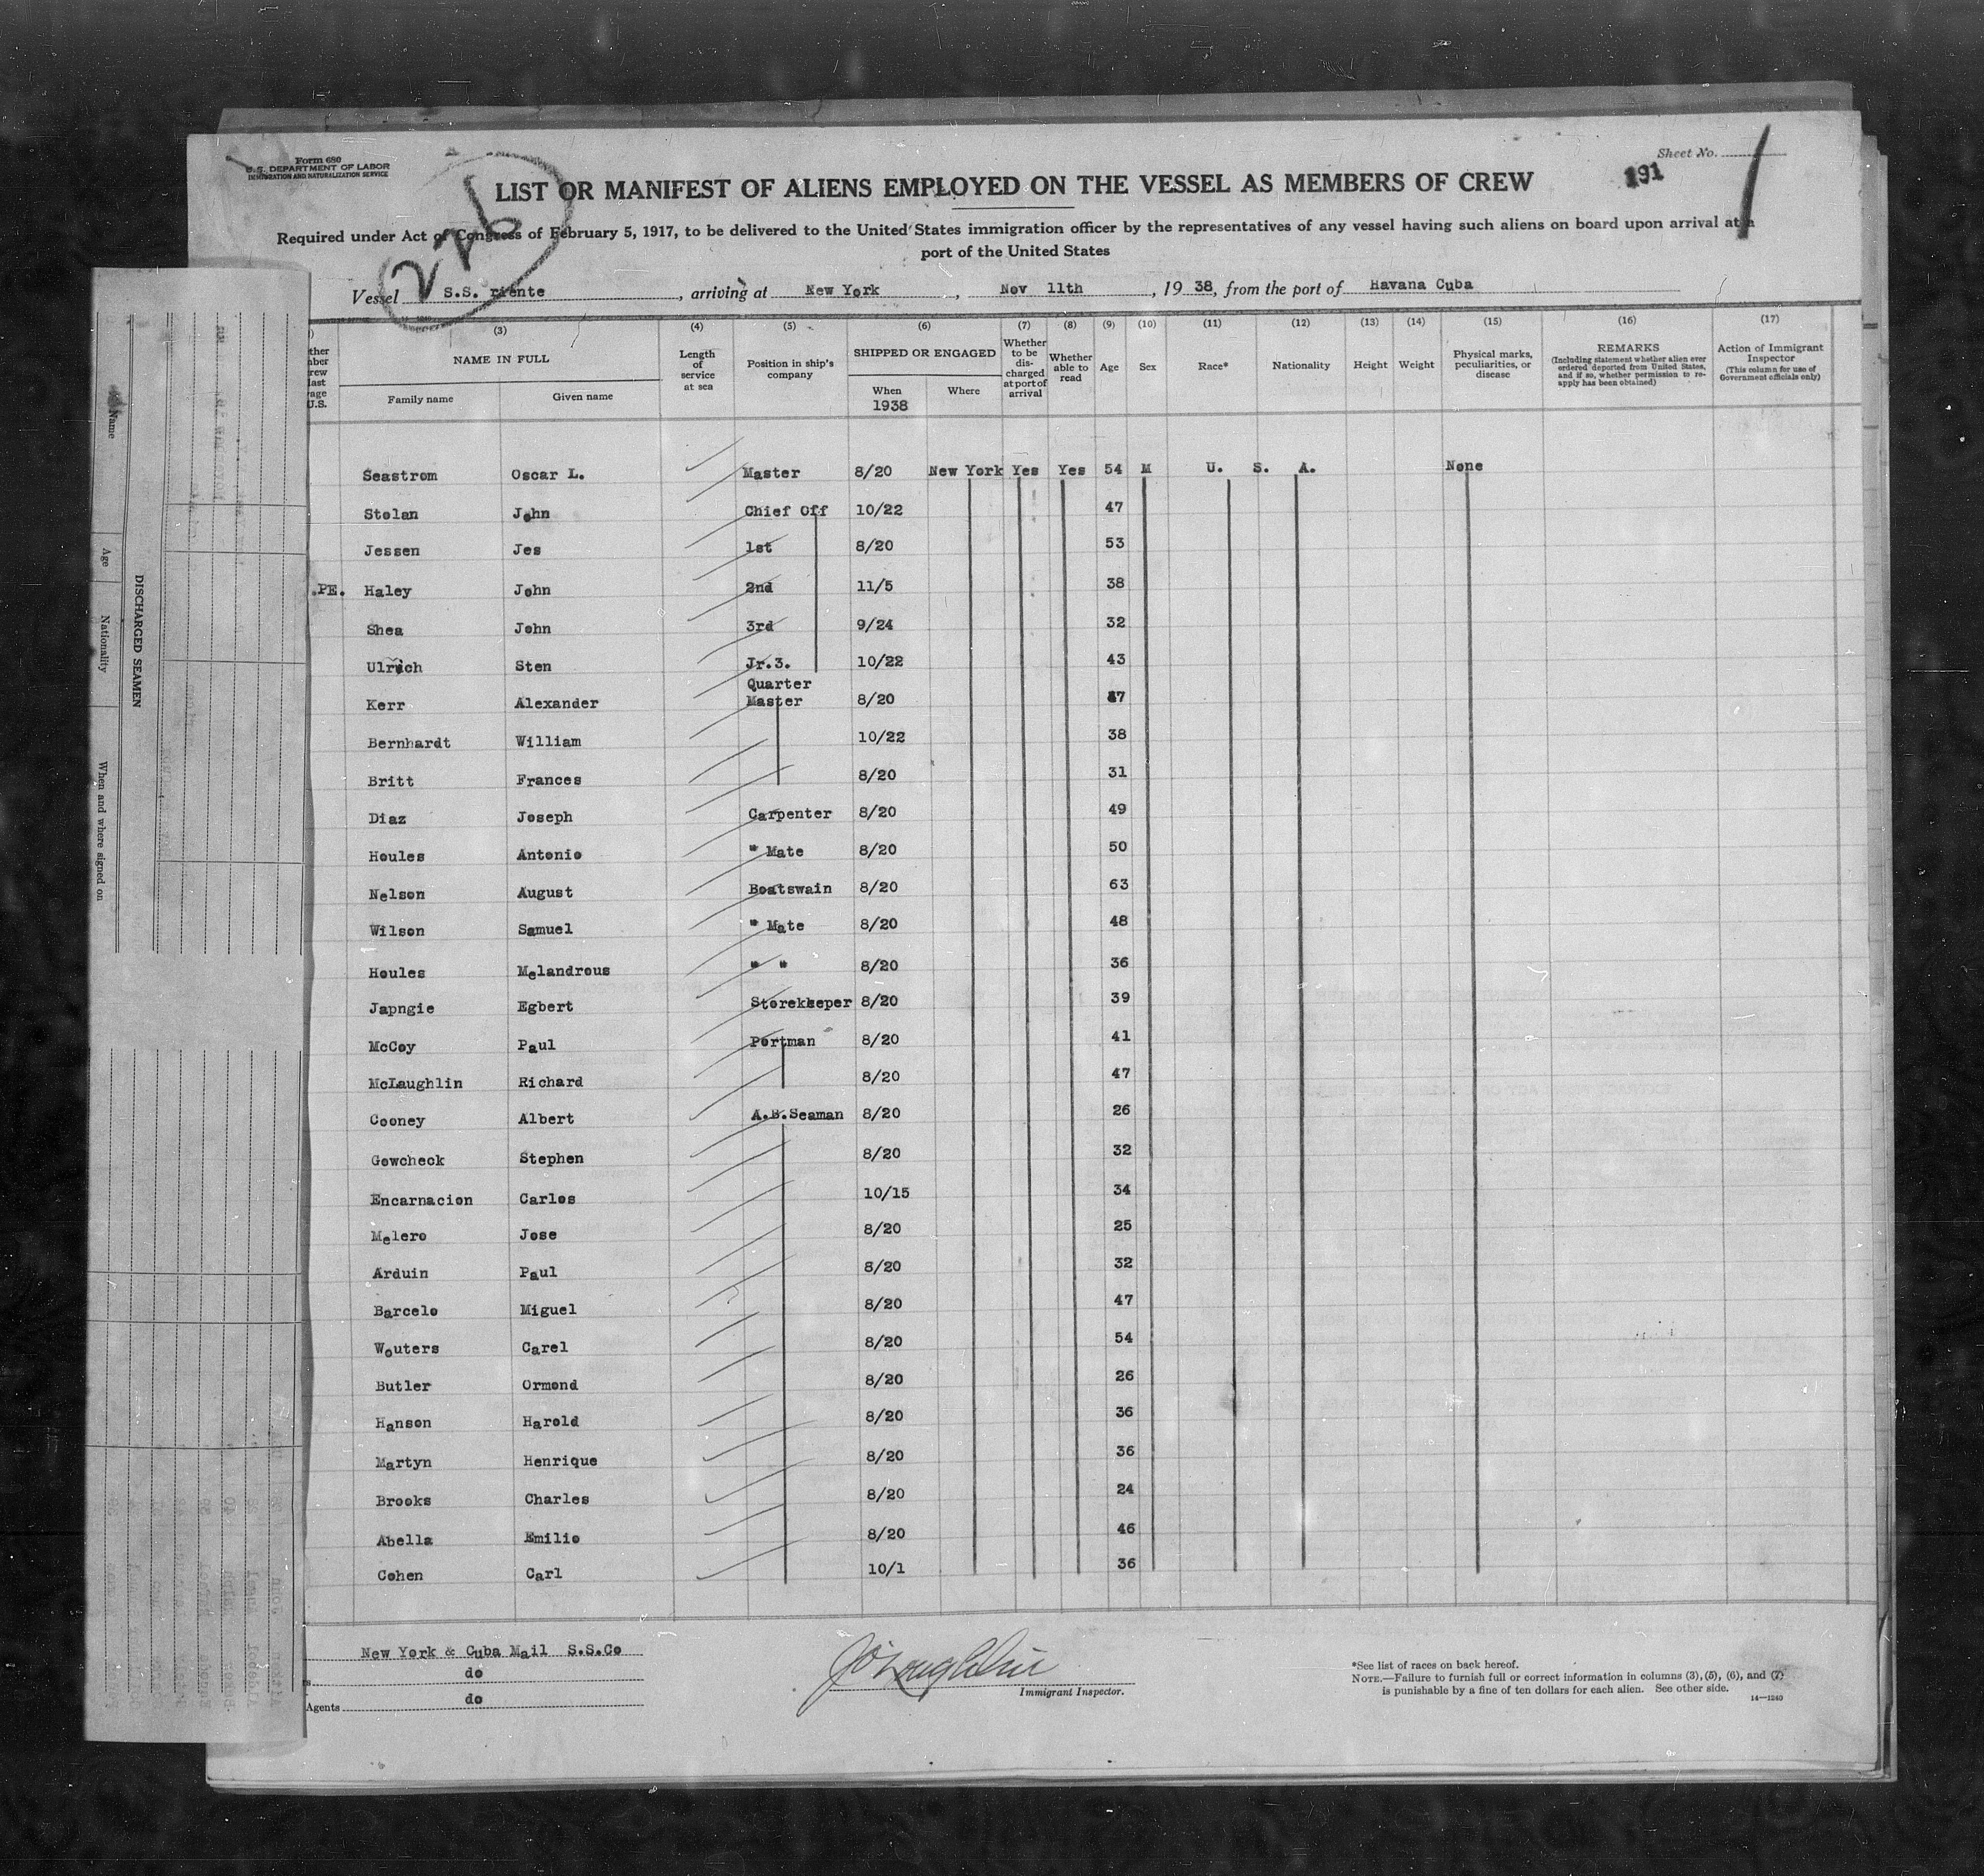 Form 680
U.S. DEPARTMENT OF LABOR
IMMIGRATION AND NATURALIZATION SERVICE
Sheet No.
191
1
LIST OR MANIFEST OF ALIENS EMPLOYED ON THE VESSEL AS MEMBERS OF CREW
Required under Act of Congress of February 5, 1917, to be delivered to the United States immigration officer by the representatives of any vessel having such aliens on board upon arrival at a
port of the United States
Vessel S.S. riente, arriving at New York, Nov 11th, 19 38, from the port of Havana Cuba
(3) (4) (5) (6) (7) (8) (9) (10) (11) (12) (13) (14) (15) (16) (17)
NAME IN FULL
Family name Given name
Length of service at sea
Position in ship's company
SHIPPED OR ENGAGED
When 1938 Where
Whether to be discharged at port of arrival
Whether able to read
Age Sex Race* Nationality Height Weight
Physical marks, peculiarities, or disease
REMARKS
(Including statement whether alien ever ordered deported from United States, and if so, whether permission to reapply has been obtained)
Action of Immigrant Inspector
(This column for use of Government officials only)
Seastrom Oscar L. Master 8/20 New York Yes Yes 54 M U. S. A. None
Stolan John Chief Off 10/22 47
Jessen Jes 1st 8/20 53
.PE. Haley John 2nd 11/5 38
Shea John 3rd 9/24 32
Ulrich Sten Jr.3. 10/22 43
Kerr Alexander Quarter Master 8/20
Bernhardt William 10/22 38
Britt Frances 8/20 31
Diaz Joseph Carpenter 8/20 49
Houles Antonio " Mate 8/20 50
Nelson August Boatswain 8/20 63
Wilson Samuel " Mate 8/20 48
Houles Melandrous " " 8/20 36
Japngie Egbert Storekeeper 8/20 39
McCoy Paul Portman 8/20 41
McLaughlin Richard 8/20 47
Cooney Albert A.B.Seaman 8/20 26
Gowcheck Stephen 8/20 32
Encarnacion Carlos 10/15 34
Melero Jose 8/20 25
Arduin Paul 8/20 32
Barcelo Miguel 8/20 47
Wouters Carel 8/20 54
Butler Ormond 8/20 26
Hanson Harold 8/20 36
Martyn Henrique 8/20 36
Brooks Charles 8/20 24
Abella Emilio 8/20 46
Cohen Carl 10/1 36
New York & Cuba Mail S.S.Co
do
Agents do
Immigrant Inspector.
*See list of races on back hereof.
NOTE.—Failure to furnish full or correct information in columns (3), (5), (6), and (7)
is punishable by a fine of ten dollars for each alien. See other side.
14—1240
DISCHARGED SEAMEN
Name
Age
Nationality
When and where signed on